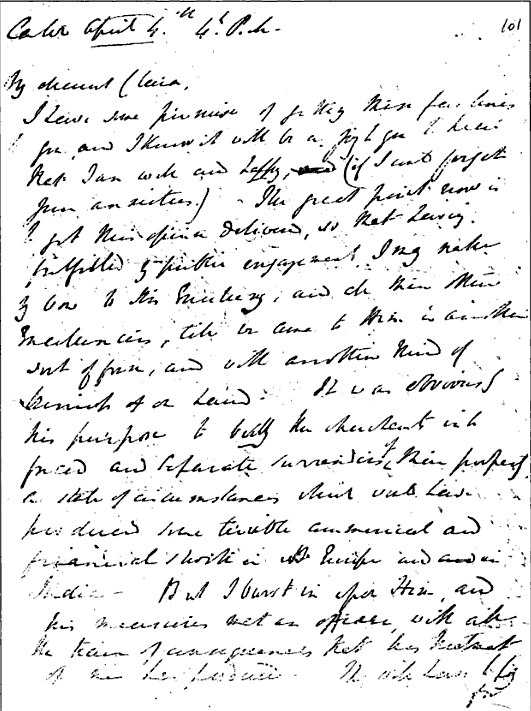 101
April 4th 4 P.M.
My dearest Clara,
I have some promise of getting these few lines
to you, and I know it will be a joy to you to hear
that I am well and happy, (if I could forget
your anxieties.) - The great point now is
to get this opium delivered, so that having
fulfilled my public engagement I may make
my bow to His Excellency, and all their other
Excellencies, till we come to them in another
sort of form, and with another kind of
in our hand. It was obviously
his purpose to bully the merchants into
forced and separate surrenders of their property
a state of circumstances which would have
produced some terrible commercial and
financial shock in Europe and in
India - But I burst in upon Him, and
his measures met an officer, with all
the train of consequences that his treatment
of me has produced. He will have to